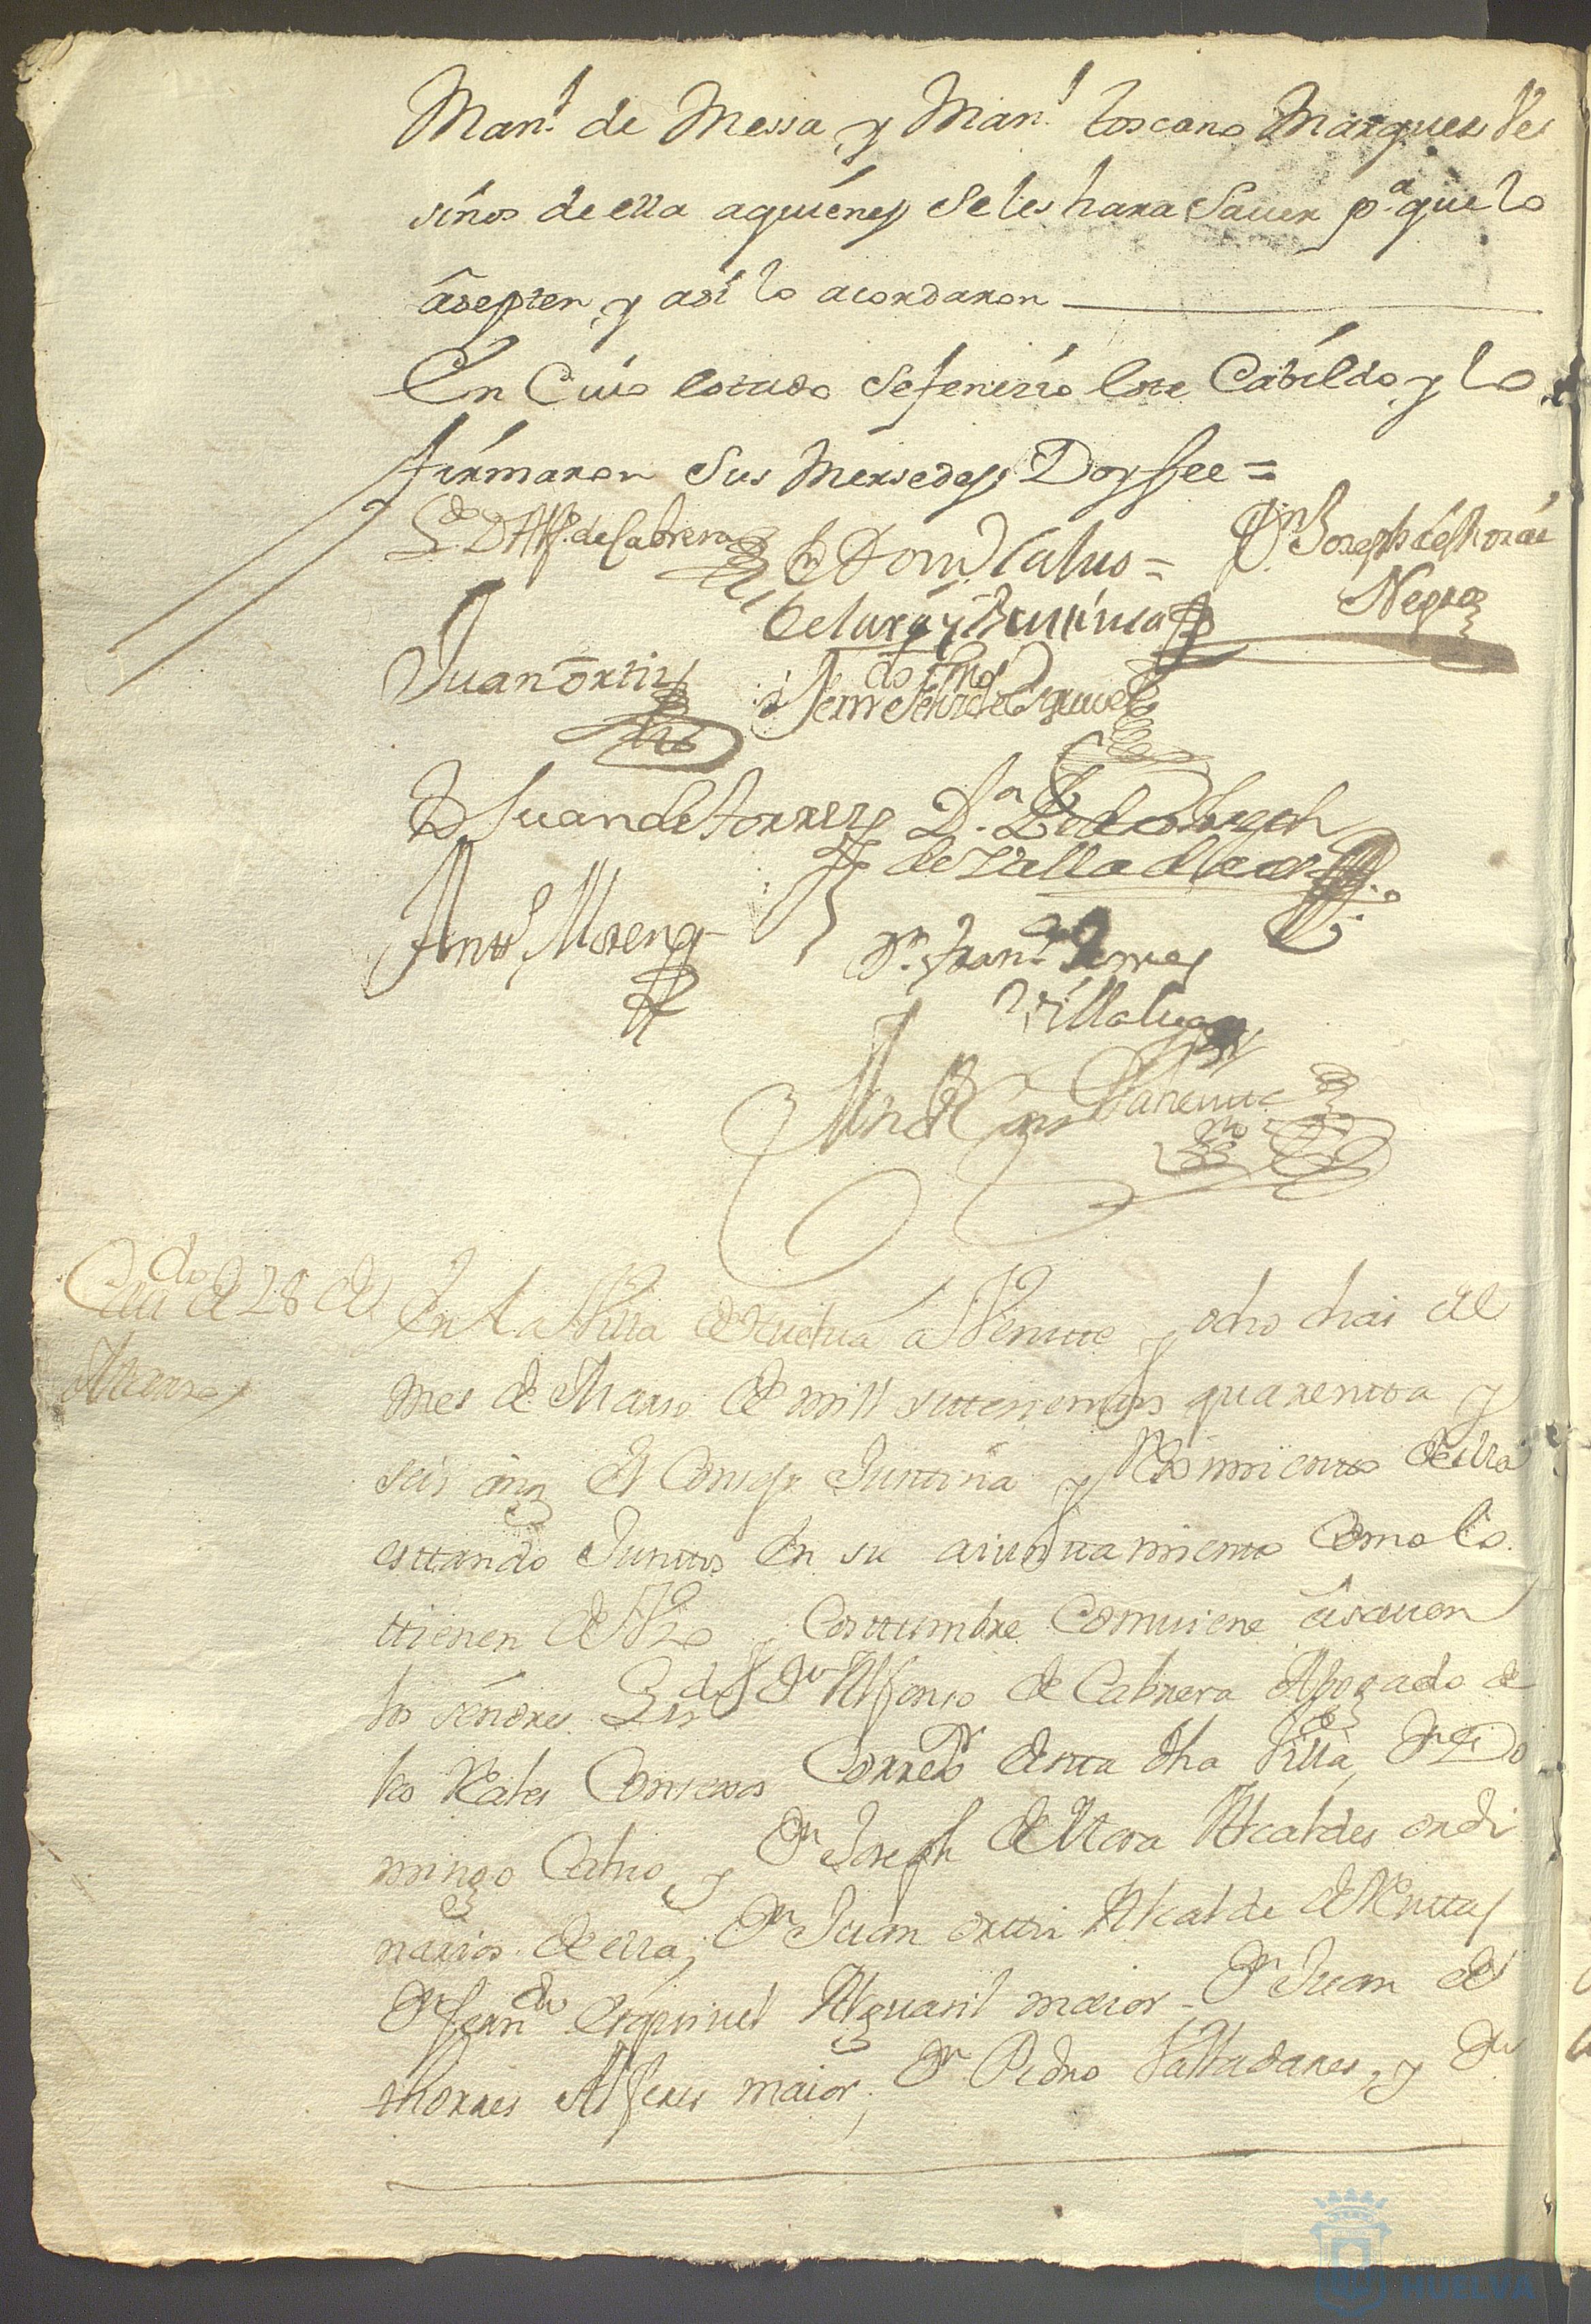 Man.l de Messa y Man.l toscano Marques Ve
sinos de ella a quienes se les hara Saver p.a que lo
asepten y asi lo acordaron
En Cuio estado se fenezio este Cabildo y lo
firmaron Sus Mersedes Doy fee =
L.do D Alf.o de Cabrera
Dn Dom.o Calvo =
Dn Joseph de Mora
Negro
de Lara y
Juan ortiz
Fern.do de Esquivel
D Juan de torres
D.n Pedro
de Valladares
Ant.o Moreno
D.n Fran.co Gomes
Villalua
Cav.do de 28 de
Marzo
En la Villa de Huelva a Veintte y ocho dias del
mes de Marso de mill settesientos quarentta y
seis años el Consejo Justtisia y Reximientto de ella
esttando Junttos en su aiunttamientto Como lo
ttienen de Vso y Costtumbre Combiene a saver
los señores Lis.do Dn Alfonso de Cabrera Abogado de
los R.ales Consexos Correx.or de esta dha Villa, Dn Do
mingo Calvo y Dn Joseph de Mora Alcaldes ordi
narios de ella; Dn Juan orttis Alcalde de Rentas
Dn Fern.do Esquivel Alguasil maior - Dn Juan de
thorres Alferes maior, Dn Pedro Valladares, y Dn
HUELVA